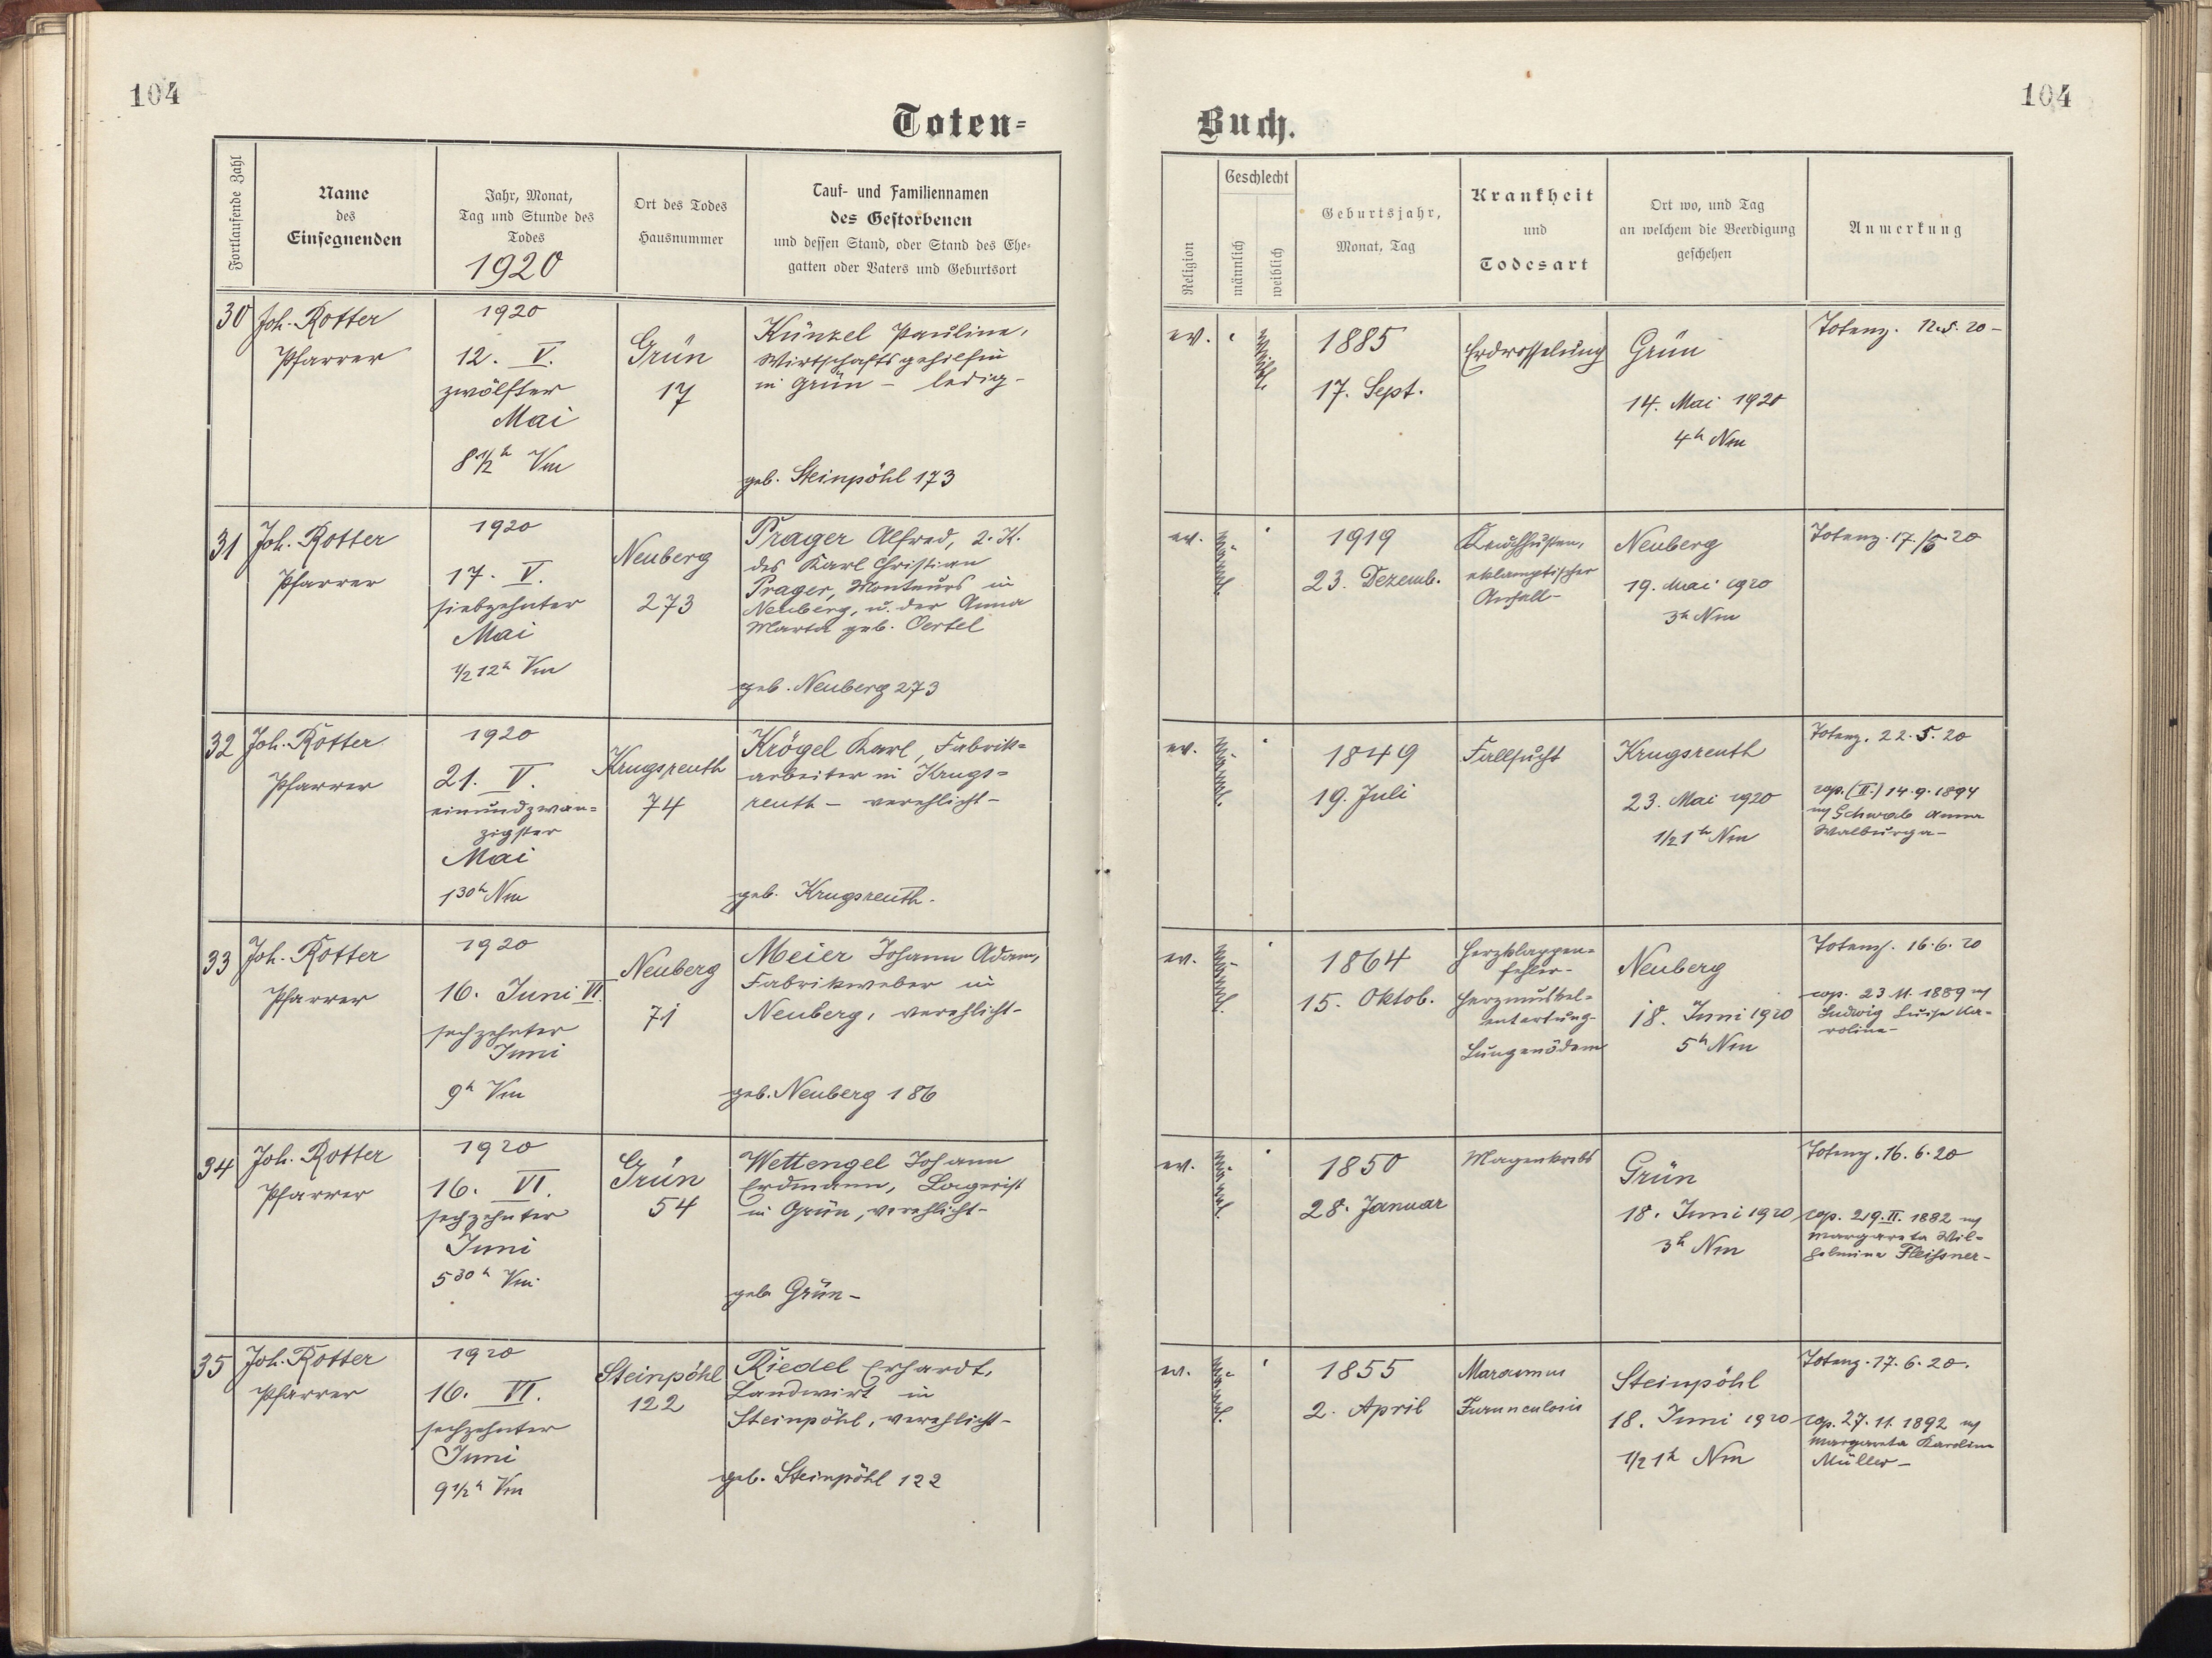 104
104
Toten=
Buch.
Fortlaufende Zahl
Name
des
Einsegnenden
Jahr, Monat,
Tag und Stunde des
Todes
1920
Ort des Todes
Hausnummer
Tauf- und Familiennamen
des Gestorbenen
und dessen Stand, oder Stand des Ehe-
gatten oder Vaters und Geburtsort
Religion
Geschlecht
männlich
weiblich
Geburtsjahr,
Monat, Tag
Krankheit
und
Todesart
Ort wo, und Tag
an welchem die Beerdigung
geschehen
Anmerkung
30
Joh. Rotter
Pfarrer
1920
12. V.
zwölfter
Mai
8 1/2 h Vm
Grün
17
Künzel Pauline,
Wirtschaftsgehilfin
in Grün - ledig -
geb. Steinpöhl 173
ev.
weibl.
1885
17. Sept.
Erdrosselung
Grün
14. Mai 1920
4h Nm
Totenz. 12.5.20 -
31
Joh. Rotter
Pfarrer
1920
17. V.
siebzehnter
Mai
1/2 12h Vm
Neuberg
273
Prager Alfred, 2. K.
des Karl Christian
Prager, Monteurs in
Neuberg, u. der Anna
Marta geb. Oertel
geb. Neuberg 273
ev.
männl.
1919
23. Dezemb.
Keuchhusten,
eklamptischer
Anfall -
Neuberg
19. Mai 1920
3h Nm
Totenz. 17./5.20
32
Joh. Rotter
Pfarrer
1920
21. V.
einundzwan=
zigster
Mai
1 30 h Nm
Krugsreuth
74
Krögel Karl, Fabrik=
arbeiter in Krugs=
reuth - verehlicht -
geb. Krugsreuth.
ev.
männl.
1849
19. Juli
Fallsucht
Krugsreuth
23. Mai 1920
1/2 1h Nm
Totenz. 22.5.20
cop. (II.) 14.9.1894
m Schwab Anna
Walburga -
33
Joh. Rotter
Pfarrer
1920
16. Juni VI.
sechzehnter
Juni
9h Vm
Neuberg
71
Meier Johann Adam,
Fabrikweber in
Neuberg, verehlicht -
geb. Neuberg 186
ev.
männl.
1864
15. Oktob.
Herzklappen=
fehler -
Herzmuskel=
entartung -
Lungenödem
Neuberg
18. Juni 1920
5h Nm
Totenz. 16.6.20
cop. 23.11.1889 m
Ludwig Luise Ka=
rolina -
34
Joh. Rotter
Pfarrer
1920
16. VI.
sechzehnter
Juni
5 30 h Vm.
Grün
54
Wettengel Johann
Erdmann, Lagerist
in Grün, verehlicht -
geb. Grün -
ev.
männl.
1850
28. Januar
Magenkrebs
Grün
18. Juni 1920
3h Nm
Totenz. 16.6.20
cop. 29.II.1882 m
Margareta Wil=
helmine Fleissner -
35
Joh. Rotter
Pfarrer
1920
16. VI.
sechzehnter
Juni
9 1/2 h Vm
Steinpöhl
122
Riedel Erhardt,
Landwirt in
Steinpöhl, verehlicht -
geb. Steinpöhl 122
ev.
männl.
1855
2. April
Marasmus
Furunculosis
Steinpöhl
18. Juni 1920
1/2 1h Nm
Totenz. 17.6.20.
cop. 27.11.1892 m
Margareta Karolina
Müller -